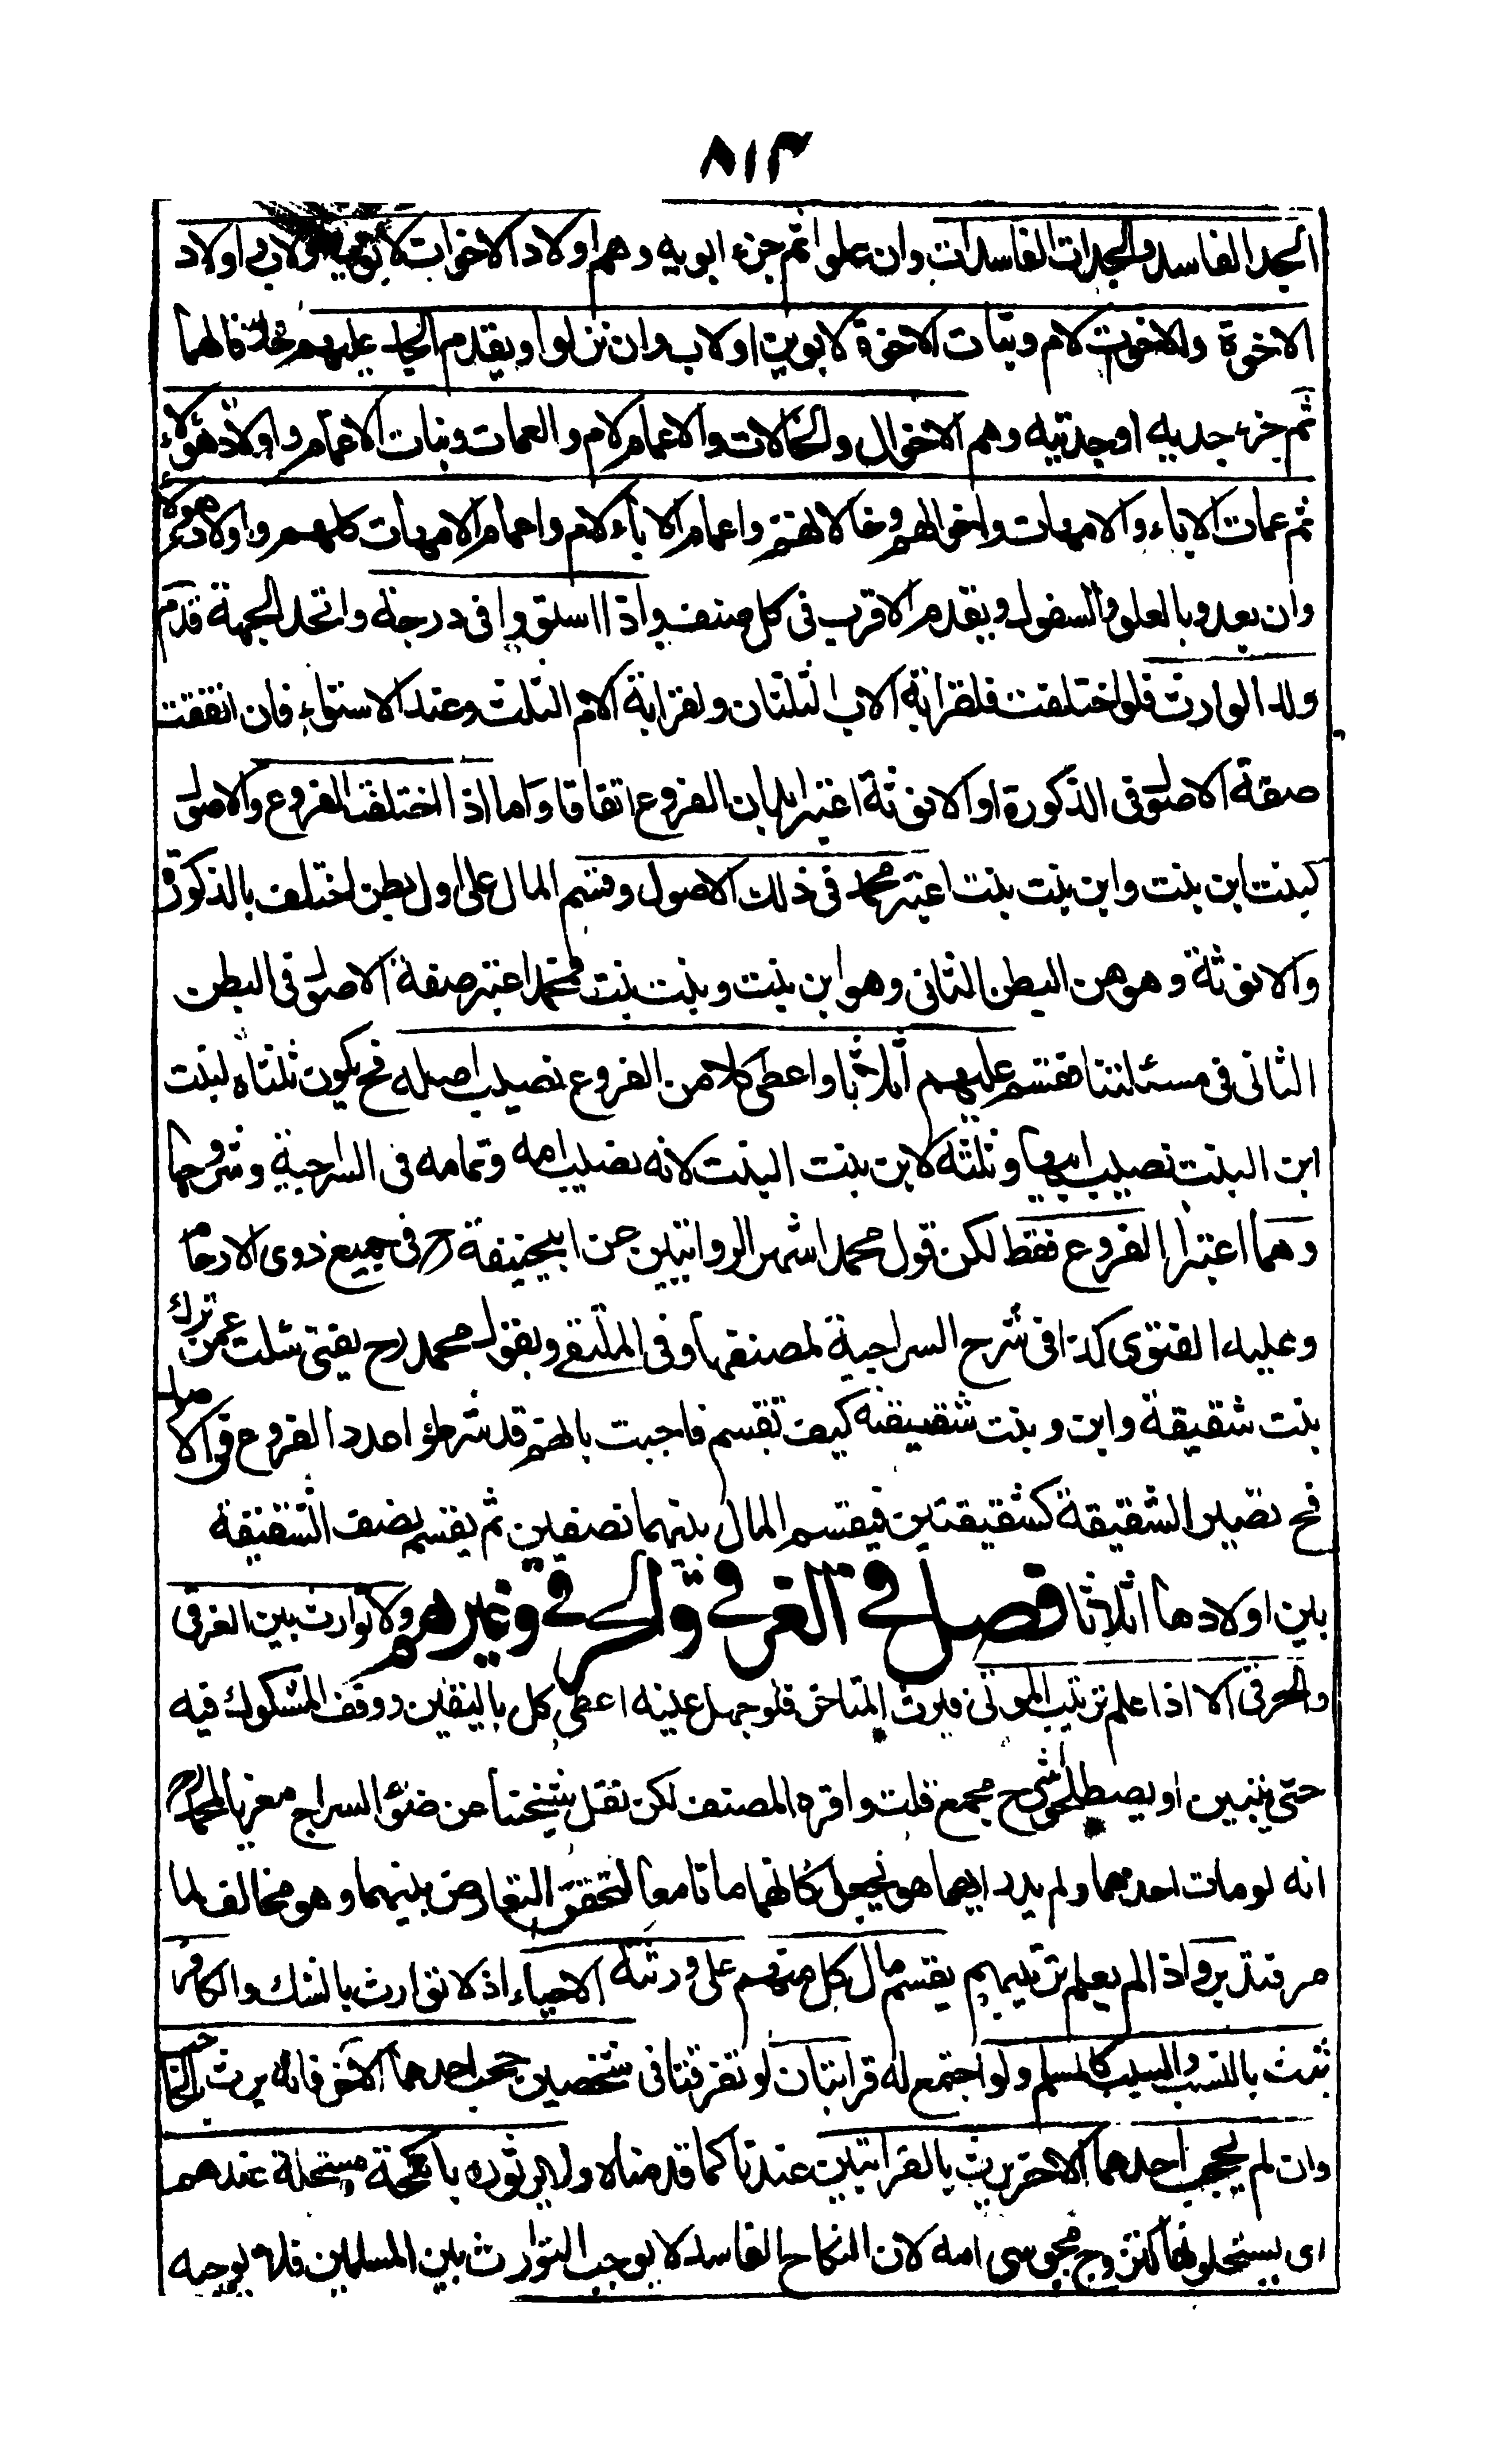 ٨١٣
الجد الفاسد والجدات الفاسدات وان علوا ثم جزء ابويه وهم اولاد الاخوات لابوين او لاب واولاد
الاخوة والاخوات لام وبنات الاخوة لابوين او لاب وان نزلوا ويقدم الجد عليهم خلافا لهما
ثم جزء جديه او جدتيه وهم الاخوال والخالات والاعمام لام والعمات وبنات الاعمام واولاد هؤلاء
ثم عمات الاباء والامهات واخوالهم وخالاتهم واعمام الاباء لام واعمام الامهات كلهم واولاد هؤلاء
وان بعدوا بالعلو والسفول ويقدم الاقرب في كل صنف واذا استووا في درجة واتحد الجهة قدم
ولد الوارث فلو اختلفت فلقرابة الاب الثلثان ولقرابة الام الثلث وعند الاستواء فان اتفقت
صفة الاصول في الذكورة او الانوثة اعتبر ابدان الفروع اتفاقا واما اذا اختلفت الفروع والاصول
كبنت ابن بنت وابن بنت بنت اعتبر محمد في ذلك الاصول وقسم المال على اول بطن اختلف بالذكورة
والانوثة وهو هن البطن الثاني وهو ابن بنت وبنت بنت فمحمد اعتبر صفة الاصول في البطن
الثاني في مسئلتنا فقسم عليهم اثلاثا واعطى كلا من الفروع نصيب اصله فح يكون ثلثاه لبنت
ابن البنت نصيب ابيها وثلثه لابن بنت البنت لانه نصيب امه وتمامه في السراجية وشروحها
وهما اعتبرا الفروع فقط لكن قول محمد اشهر الروايتين عن ابيحنيفة رح في جميع ذوى الارحام
وعليه الفتوى كذا في شرح السراجية لمصنفها وفى الملتقى وبقول محمد رح يفتى سئلت عمن ترك
بنت شقيقة وابن وبنت شقيقة كيف تقسم فاجبت بانهم قد شرطوا عدد الفروع في الاصل
فح تصير الشقيقة كشقيقتين فيقسم المال بينهما نصفين ثم يقسم نصف الشقيقة
بين اولادها اثلاثا فصل في الغرقى والحرقى وغيرهم ولا توارث بين الغرقى
والحرقى الا اذا علم ترتيب الموتى فيرث المتاخر فلو جهل عينه اعطى كل باليقين ووقف المشكوك فيه
حتى يتبين او يصطلحوا شرح مجمع قلت واقره المصنف لكن نقل شيخنا عن ضوء السراج معزيا لمحمد رح
انه لو مات احدهما ولم يدر ايهما هو يجعل كانهما ماتا معا لتحقق التعارض بينهما وهو مخالف لما
مر فتدبر واذا لم يعلم ترتيبهم يقسم مال كل منهم على ورثته الاحياء اذ لا توارث بالشك والكافر
يرث بالنسب والسبب كالمسلم ولو اجتمع له قرابتان لو تفرقتا في شخصين حجب احدهما الاخر فانه يرث بالحاجب
وان لم يحجب احدهما الاخر يرث بالقرابتين عندنا كما قدمناه ولا يرثون بانكحة مستحلة عندهم
اى يستحلونها كتزوج مجوسى امه لان النكاح الفاسد لا يوجب التوارث بين المسلمين فلا يوجبه